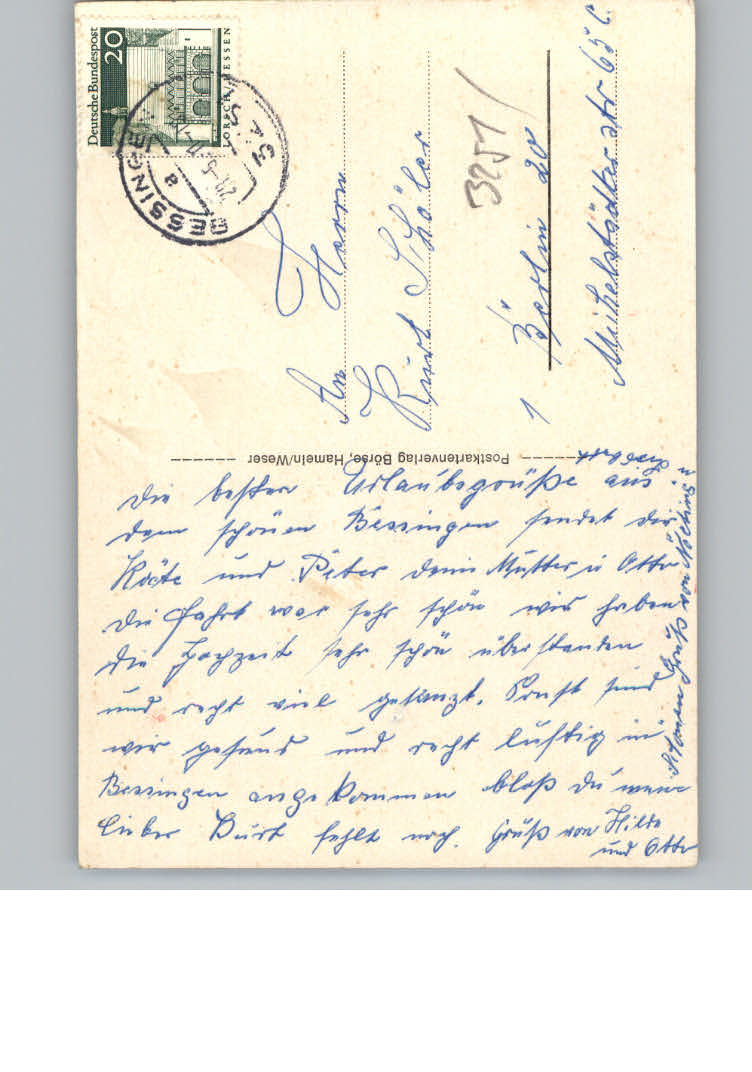 Deutsche Bundespost
20
LORSCH / HESSEN
BESSINGEN
3251
An Herrn
Kurt Schöler
1 Berlin 20
Michelstadter str 65 C
Postkartenverlag Börse, Hameln/Weser
Die besten Urlaubsgrüße aus
dem schönen Bessingen sendet dir
Käte und Peter deine Mutter u Otto
Die Fahrt war sehr schön wir haben
die Hochzeit sehr schön überstanden
und recht viel getanzt. Sonst sind
wir gesund und recht lustig in
Bessingen angekommen bloß du mein
lieber Kurt fehlt noch. Gruß von Hilde
und Otto
Schönen Gruß von